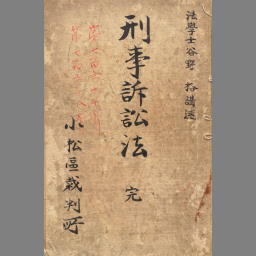 法學士谷野 格講述
刑事訴訟法 完
小松區裁判所